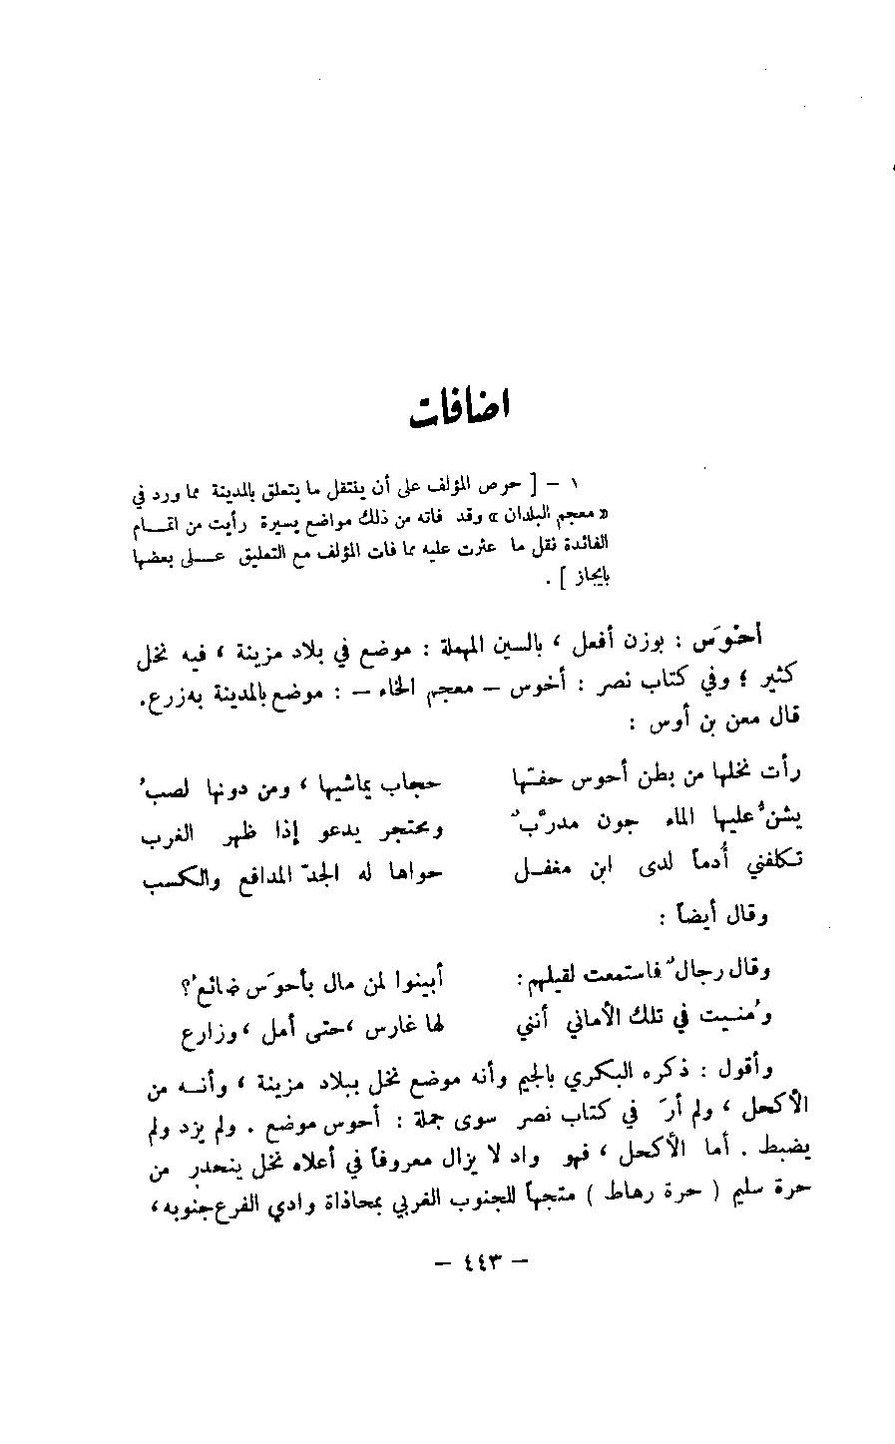 اضافات
١ - [ حرص المؤلف على أن ينتقل ما يتعلق بالمدينة مما ورد في
« معجم البلدان » وقد فاته من ذلك مواضع يسيرة رأيت من اتمـام
الفائدة نقل ما عثرت عليه مما فات المؤلف مع التعليق عـلى بعضها
بايجاز ] .
أحْوَس : بوزن أفعل ، بالسين المهملة : موضع في بلاد مزينة ، فيه نخل
كثير ؛ وفي كتاب نصر : أخوس - معجم الخاء - : موضع بالمدينة به زرع.
قال معن بن أوس :
رأت نخلها من بطن أحوس حفتها حجاب يماشيها ، ومن دونها لصبُ
يشنُّ عليها الماء جون مدرَّبٌ ومحتجر يدعو إذا ظهر الغرب
تكلفني أُدماً لدى ابن مغفـل حواها له الجدّ المدافع والكسب
وقال أيضاً :
وقال رجالٌ فاستمعت لقيلهم : أبينوا لمن مال بأحوَس ضائعُ؟
ومُنـيت في تلك الأماني أنني لها غارس ،حتى أمل ، وزارع
وأقول : ذكره البكري بالجيم وأنه موضع نخل ببلاد مزينة ، وأنـه من
الأكحل ، ولم أرَ في كتاب نصر سوى جملة : أحوس موضع . ولم يزد ولم
يضبط . أما الأكحل ، فهو واد لا يزال معروفاً في أعلاه نخل ينحدر من
حرة سليم ( حرة رهاط ) متجهاً للجنوب الغربي بمحاذاة وادي الفرع جنوبه،
- ٤٤٣ -